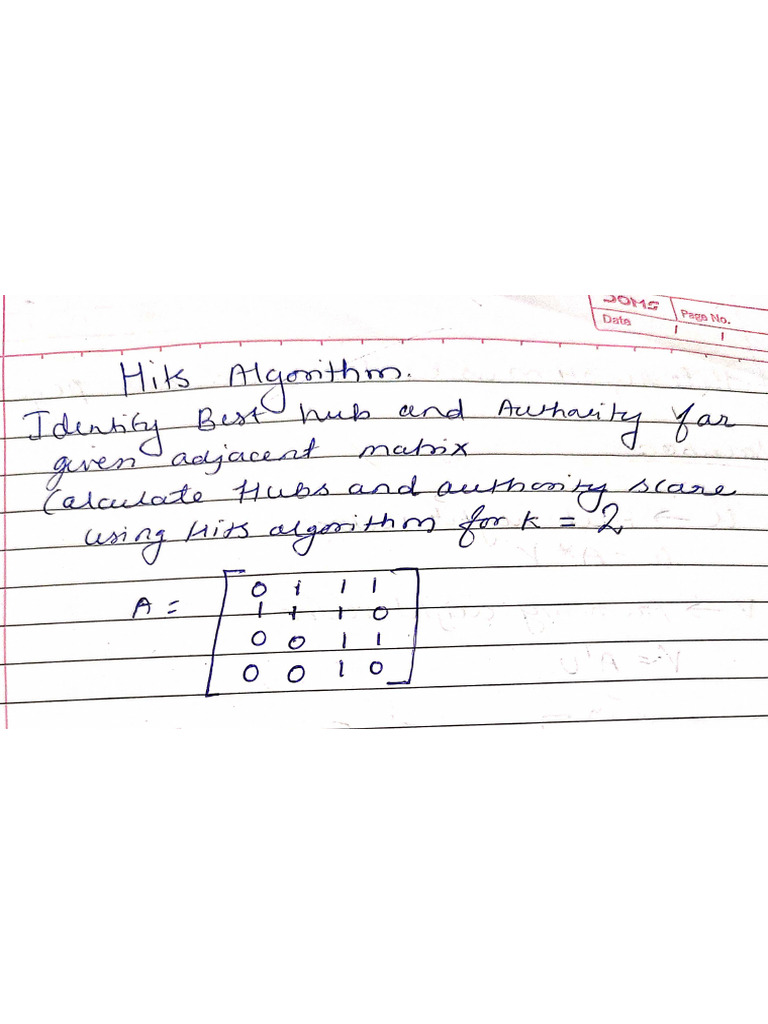 DOMS
Date / / Page No.
Hits Algorithm.
Identify Best hub and Authority for
given adjacent matrix
Calculate Hubs and authority score
using Hits algorithm for k = 2
A = [ 0 1 1 1
1 1 1 0
0 0 1 1
0 0 1 0 ]